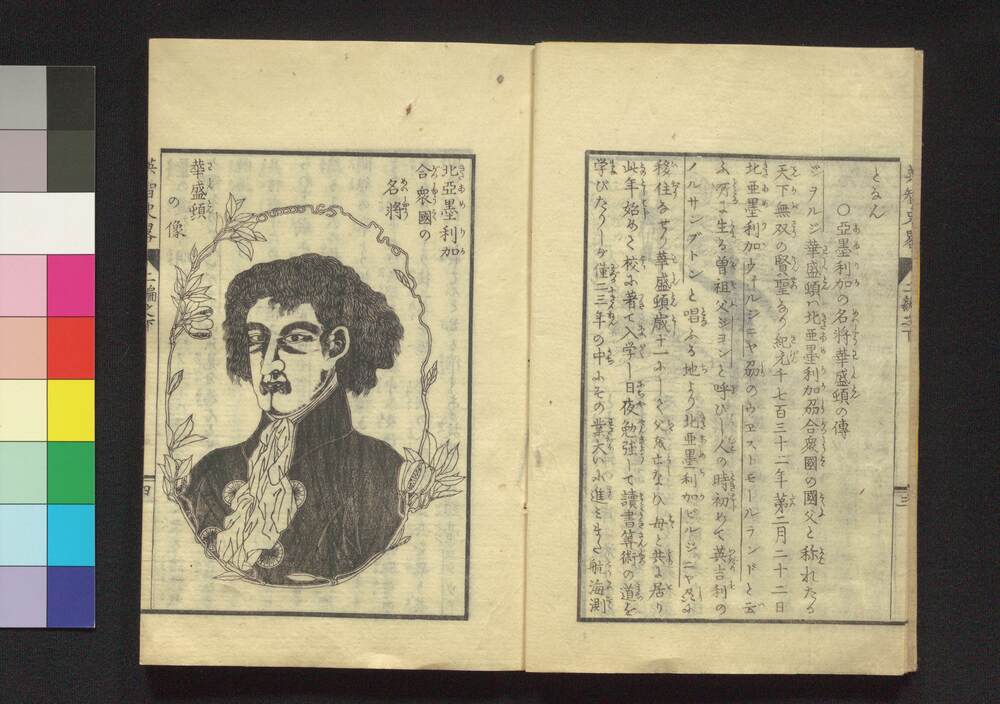 となん
○亞墨利加の名将華盛頓の傳
ジヲルジ華盛頓ハ北亜墨利加州合衆國の國父と称れたる
天下無双の賢聖なり紀元千七百三十二年第二月二十二日
北亜墨利加ウイルジニヤ州のウエストモールランドと云
ふ所に生る曽祖父ジヨンと呼びし人の時初めて英吉利の
ノルサンプトンと唱ふる地より北亜墨利加ビルジニヤ州に
移住なせり華盛頓歳十一にして父死亡なひ母と共に居り
此年始めて校に著て入学し日夜勉強して讀書算術の道を
学びたりしが僅二三年の中にその業大いに進ミまた航海測
三
北亞墨利加
合衆國の
名将
華盛頓
の像
四